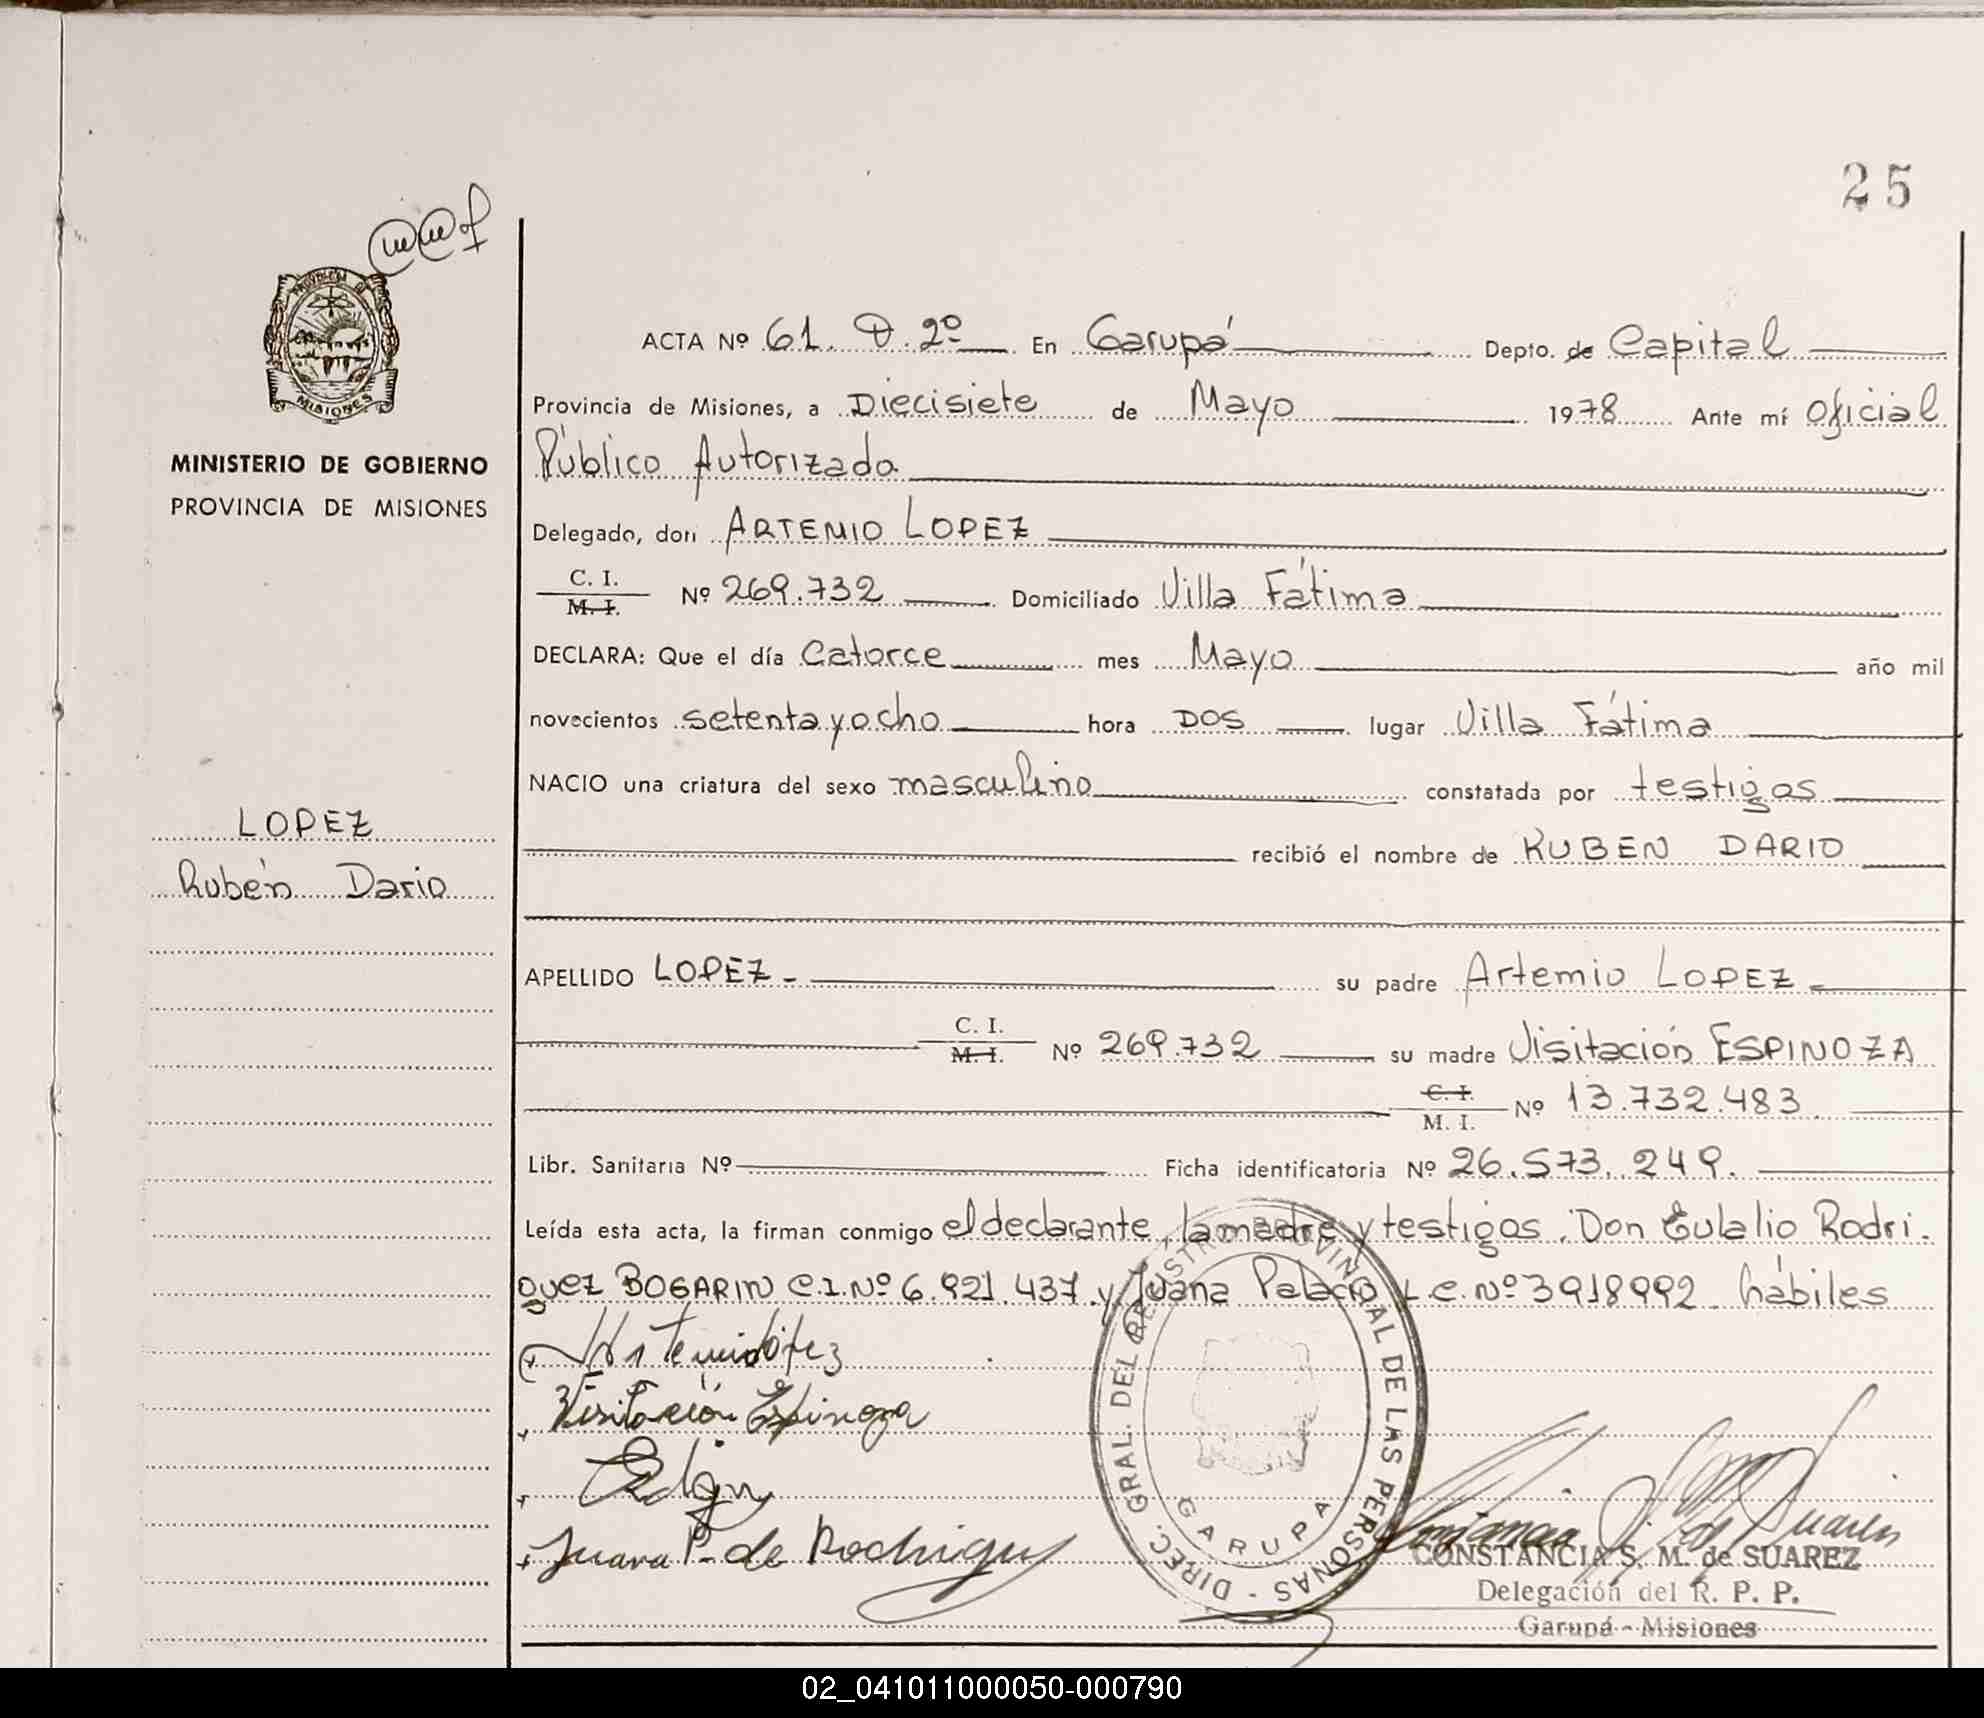 25
PROVINCIA DE
MISIONES
MINISTERIO DE GOBIERNO
PROVINCIA DE MISIONES
LOPEZ
Rubén Dario
ACTA Nº 61. D. 2º En Garupá Depto. de Capital
Provincia de Misiones, a Diecisiete de Mayo 1978 Ante mí Oficial
Público Autorizada
Delegado, don ARTEMIO LOPEZ
C. I.
M. I. Nº 269.732 Domiciliado Villa Fátima
DECLARA: Que el día Catorce mes Mayo año mil
novecientos setenta y ocho hora DOS lugar Villa Fátima
NACIO una criatura del sexo masculino constatada por testigos
recibió el nombre de RUBEN DARIO
APELLIDO LOPEZ - su padre Artemio LOPEZ -
C. I.
M. I. Nº 269.732 su madre Visitación ESPINOZA
C. I.
M. I. Nº 13.732.483
Libr. Sanitaria Nº Ficha identificatoria Nº 26.573.249.
Leída esta acta, la firman conmigo el declarante, la madre y testigos. Don Eulalio Rodri.
guez BOGARIN C.I.Nº 6.921.437 y Juana Palacio L.C.Nº 3918992 hábiles
Artemio López
Visitación Espinoza
Juana P. de Rodrigu
DIREC. GRAL. DEL REGISTRO PROVINCIAL DE LAS PERSONAS -
GARUPA
CONSTANCIA S. M. de SUAREZ
Delegación del R. P. P.
Garupá - Misiones
02_041011000050-000790